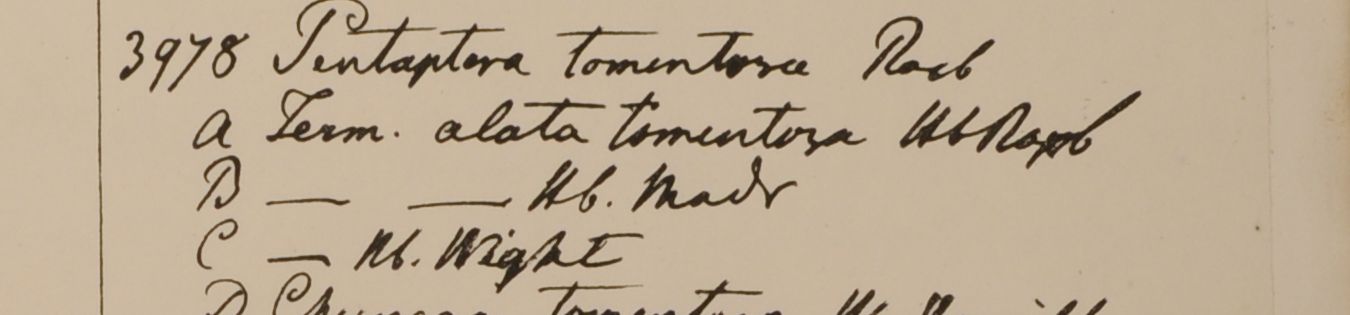 3978 Pentaptera tomentosa Roxb
A Term. alata tomentosa Hb Roxb
B — — Hb. Madr
C — Hb. Wight
D tomentosa Hb